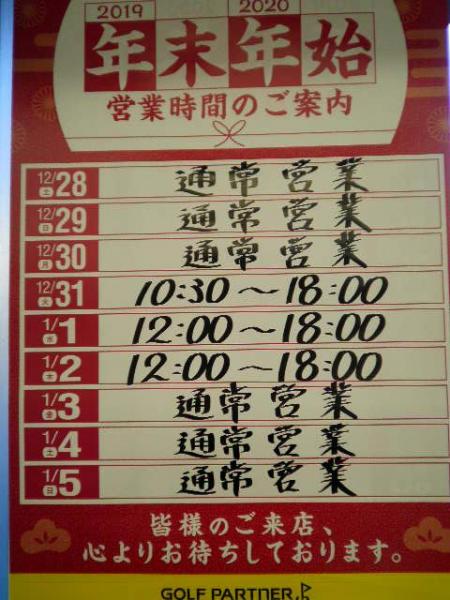 2019 2020
年末年始
営業時間のご案内
12/28 土 通常営業
12/29 日 通常営業
12/30 月 通常営業
12/31 火 10:30～18:00
1/1 水 12:00～18:00
1/2 木 12:00～18:00
1/3 金 通常営業
1/4 土 通常営業
1/5 日 通常営業
皆様のご来店、
心よりお待ちしております。
GOLF PARTNER